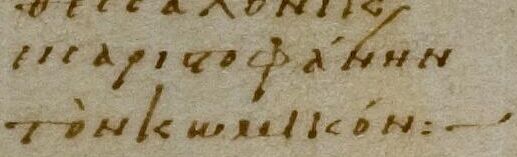 θεσσαλονίκης
εἰς ἀριστοφάνην
τὸν κωμικόν:—